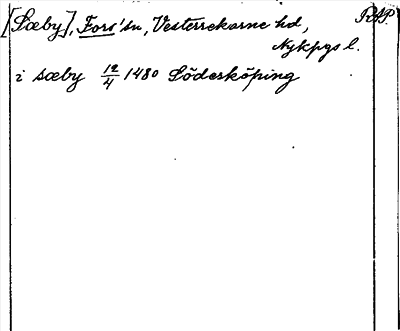 [Sæby], Fors' sn, Vesterrekarne hd, RAP.
Nykpgs l.
i sæby 12/4 1480 Söderköping